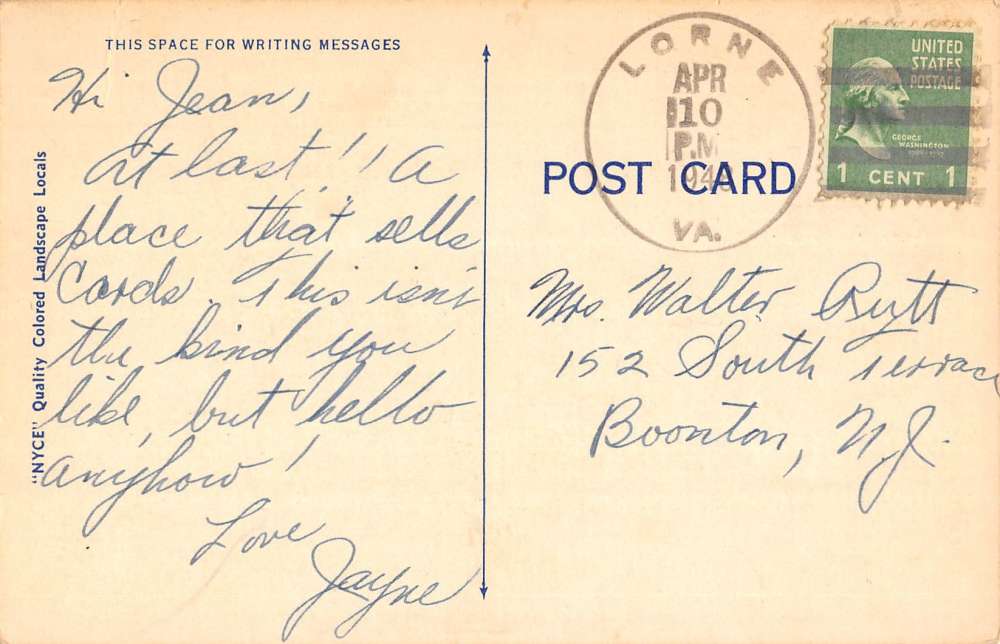 THIS SPACE FOR WRITING MESSAGES
Hi Jean,
At last!! A
place that sells
Cards. This isn't
the kind you
like, but hello
anyhow!
Love
Jayne
"NYCE" Quality Colored Landscape Locals
POST CARD
LORNE
APR
10
P.M.
VA.
UNITED
STATES
POSTAGE
GEORGE
WASHINGTON
1 CENT 1
Mrs. Walter
152 South Terrace
Boonton, N.J.